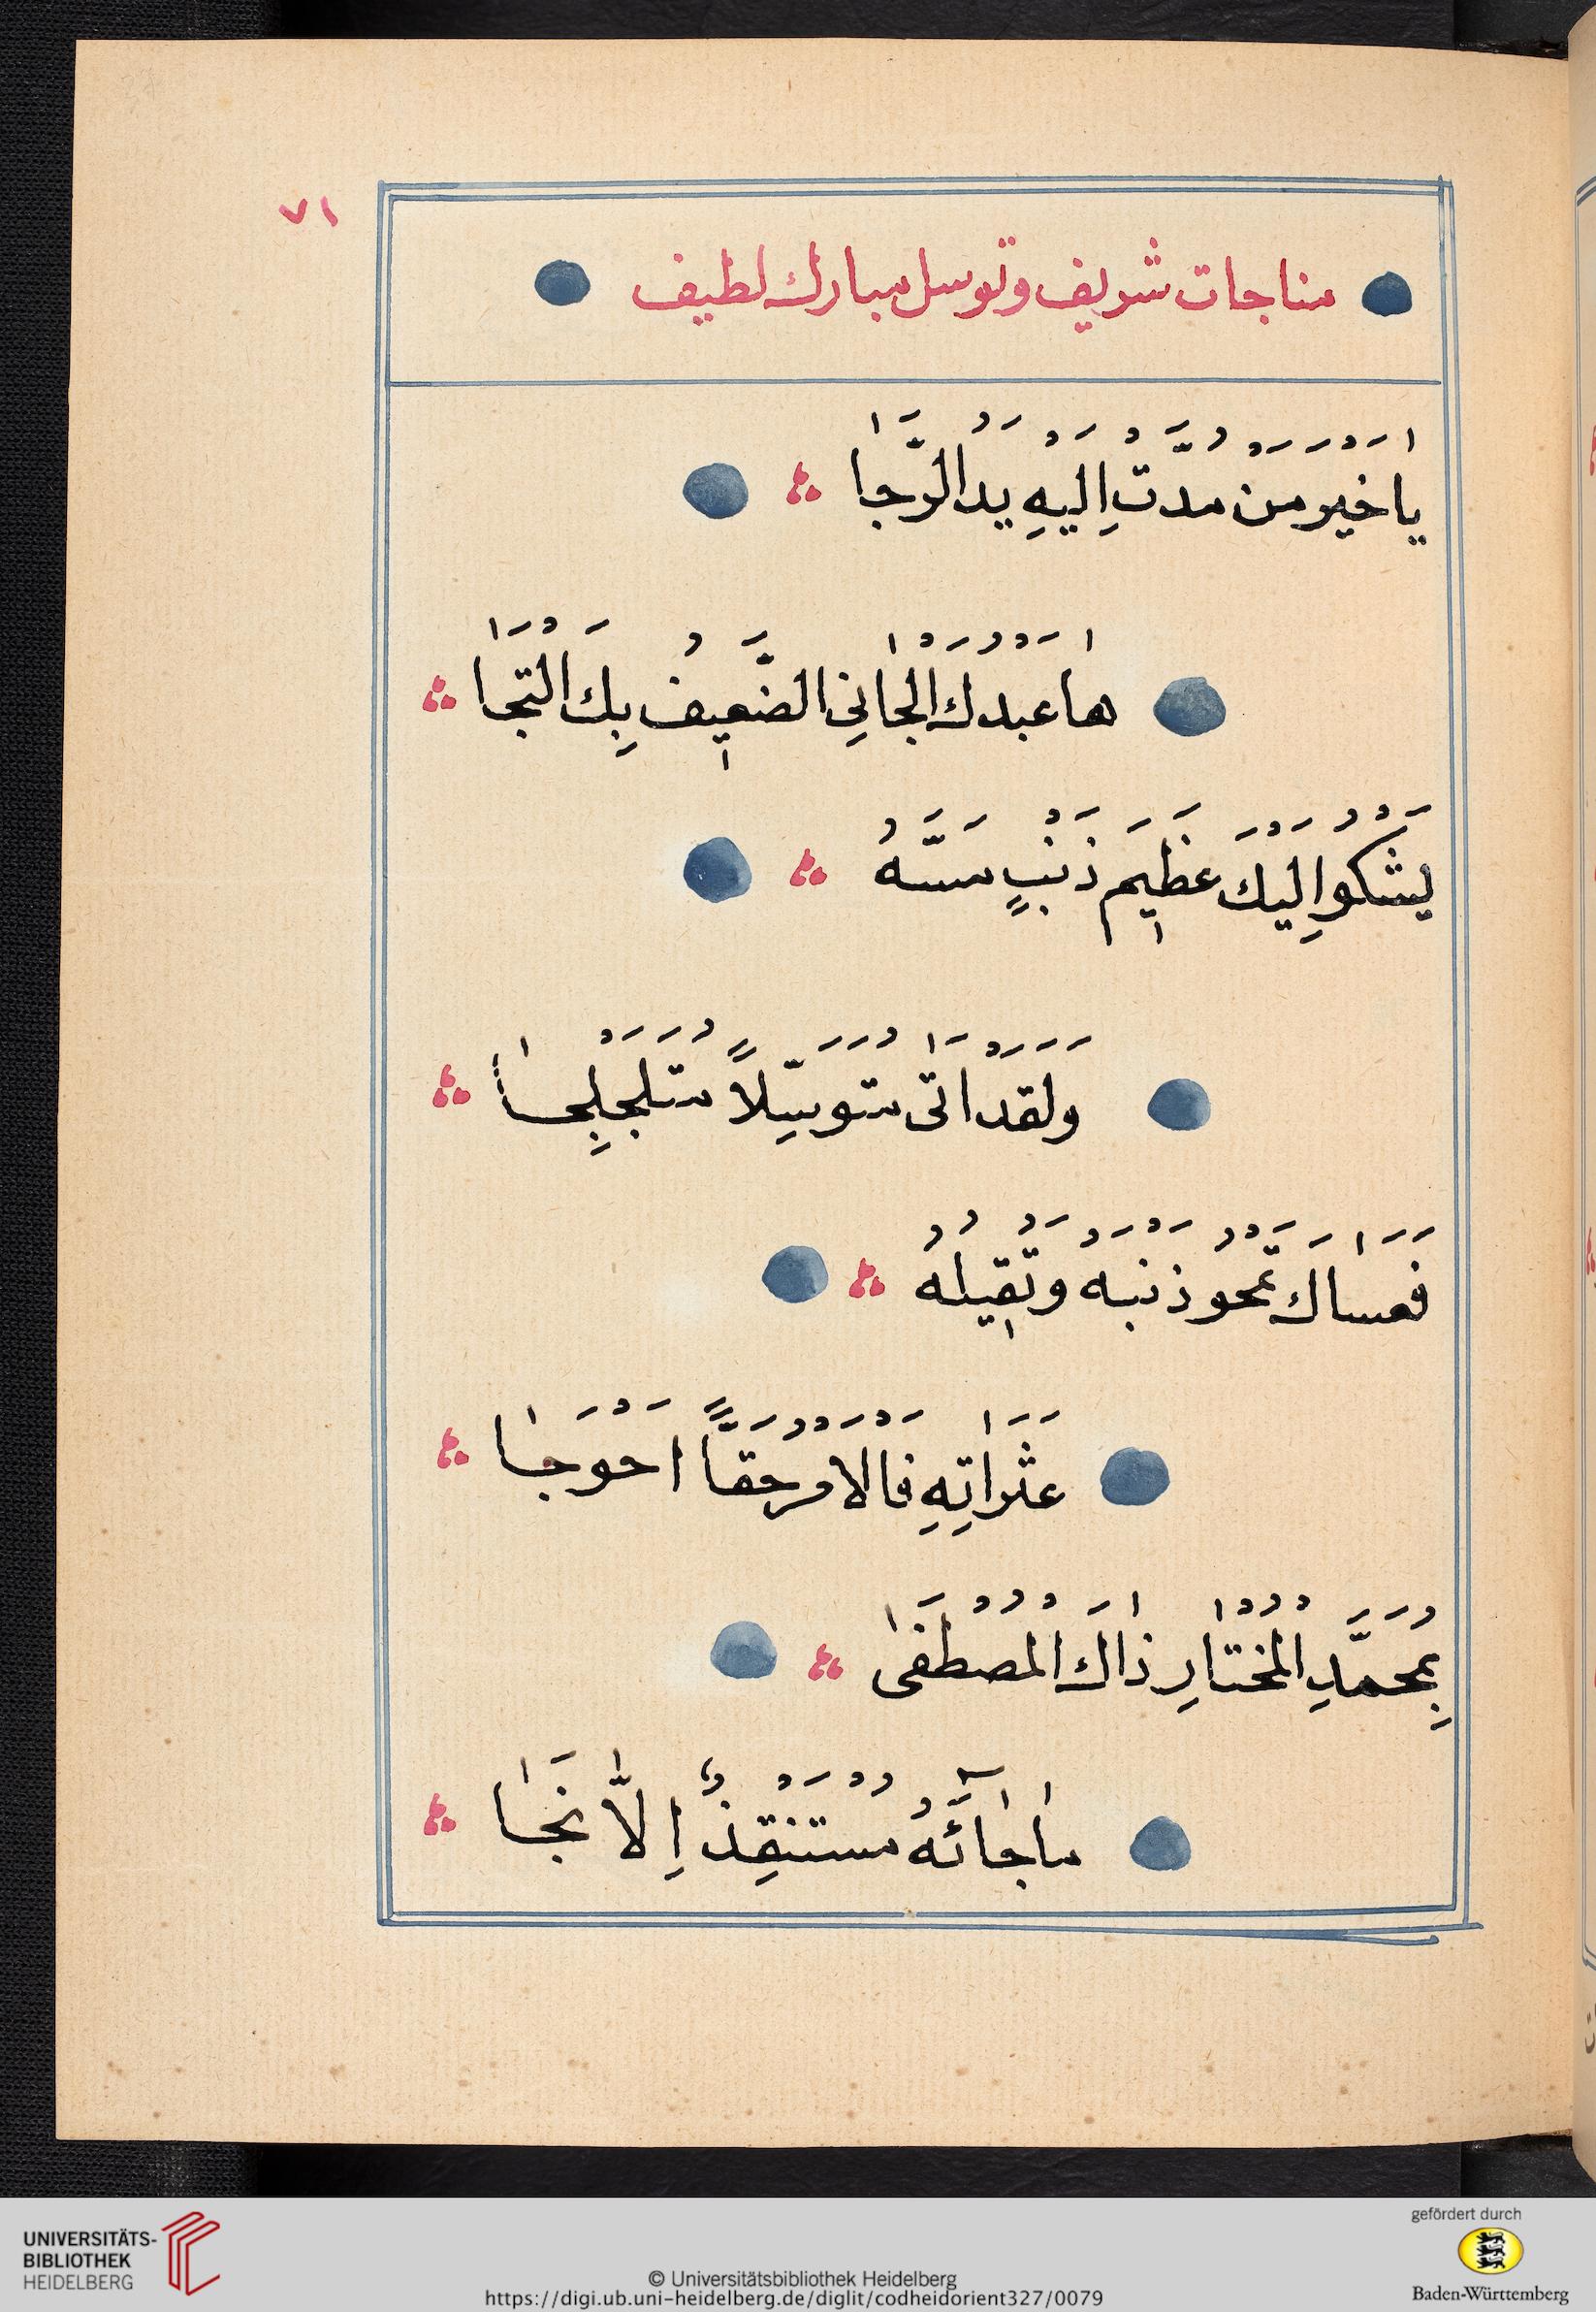 ٧١
مناجات شريف وتوسل مبارك لطيف
يَا خَيْرَ مَنْ مُدَّتْ اِلَيْهِ يَدُ الرَّجَا
هَا عَبْدُكَ الْجَانِي الضَّعِيفُ بِكَ الْتَجَا
يَشْكُو اِلَيْكَ عَظِيمَ ذَنْبٍ مَسَّهُ
وَلَقَدْ اَتَى مُتَوَسِّلاً مُتَلَجْلِجاً
فَعَسَاكَ تَمْحُو ذَنْبَهُ وَتُقِيلُهُ
عَثَرَاتِهِ فَالْاَمْرُ حَقًّا اَحْوَجَا
بِمُحَمَّدِ الْمُخْتَارِ ذَاكَ الْمُصْطَفَى
مَا جَآئَهُ مُسْتَنْقِذٌ اِلاَّ نَجَا
UNIVERSITÄTS-
BIBLIOTHEK
HEIDELBERG
© Universitätsbibliothek Heidelberg
https://digi.ub.uni-heidelberg.de/diglit/codheidorient327/0079
gefördert durch
Baden-Württemberg